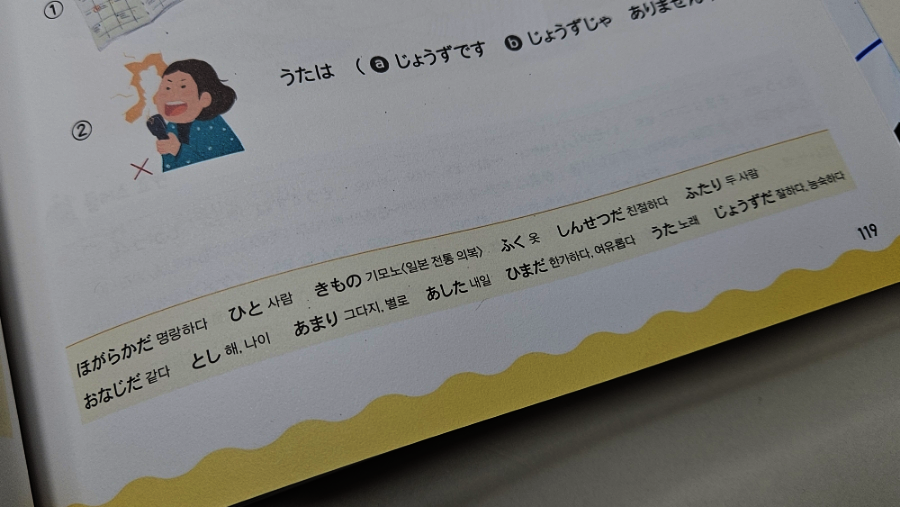 ①
②
うたは ( ⓐ じょうずです ⓑ じょうずじゃ ありません
ほがらかだ 명랑하다 ひと 사람 きもの 기모노〈일본 전통 의복〉 ふく 옷 しんせつだ 친절하다 ふたり 두 사람
おなじだ 같다 とし 해, 나이 あまり 그다지, 별로 あした 내일 ひまだ 한가하다, 여유롭다 うた 노래 じょうずだ 잘하다, 능숙하다
119